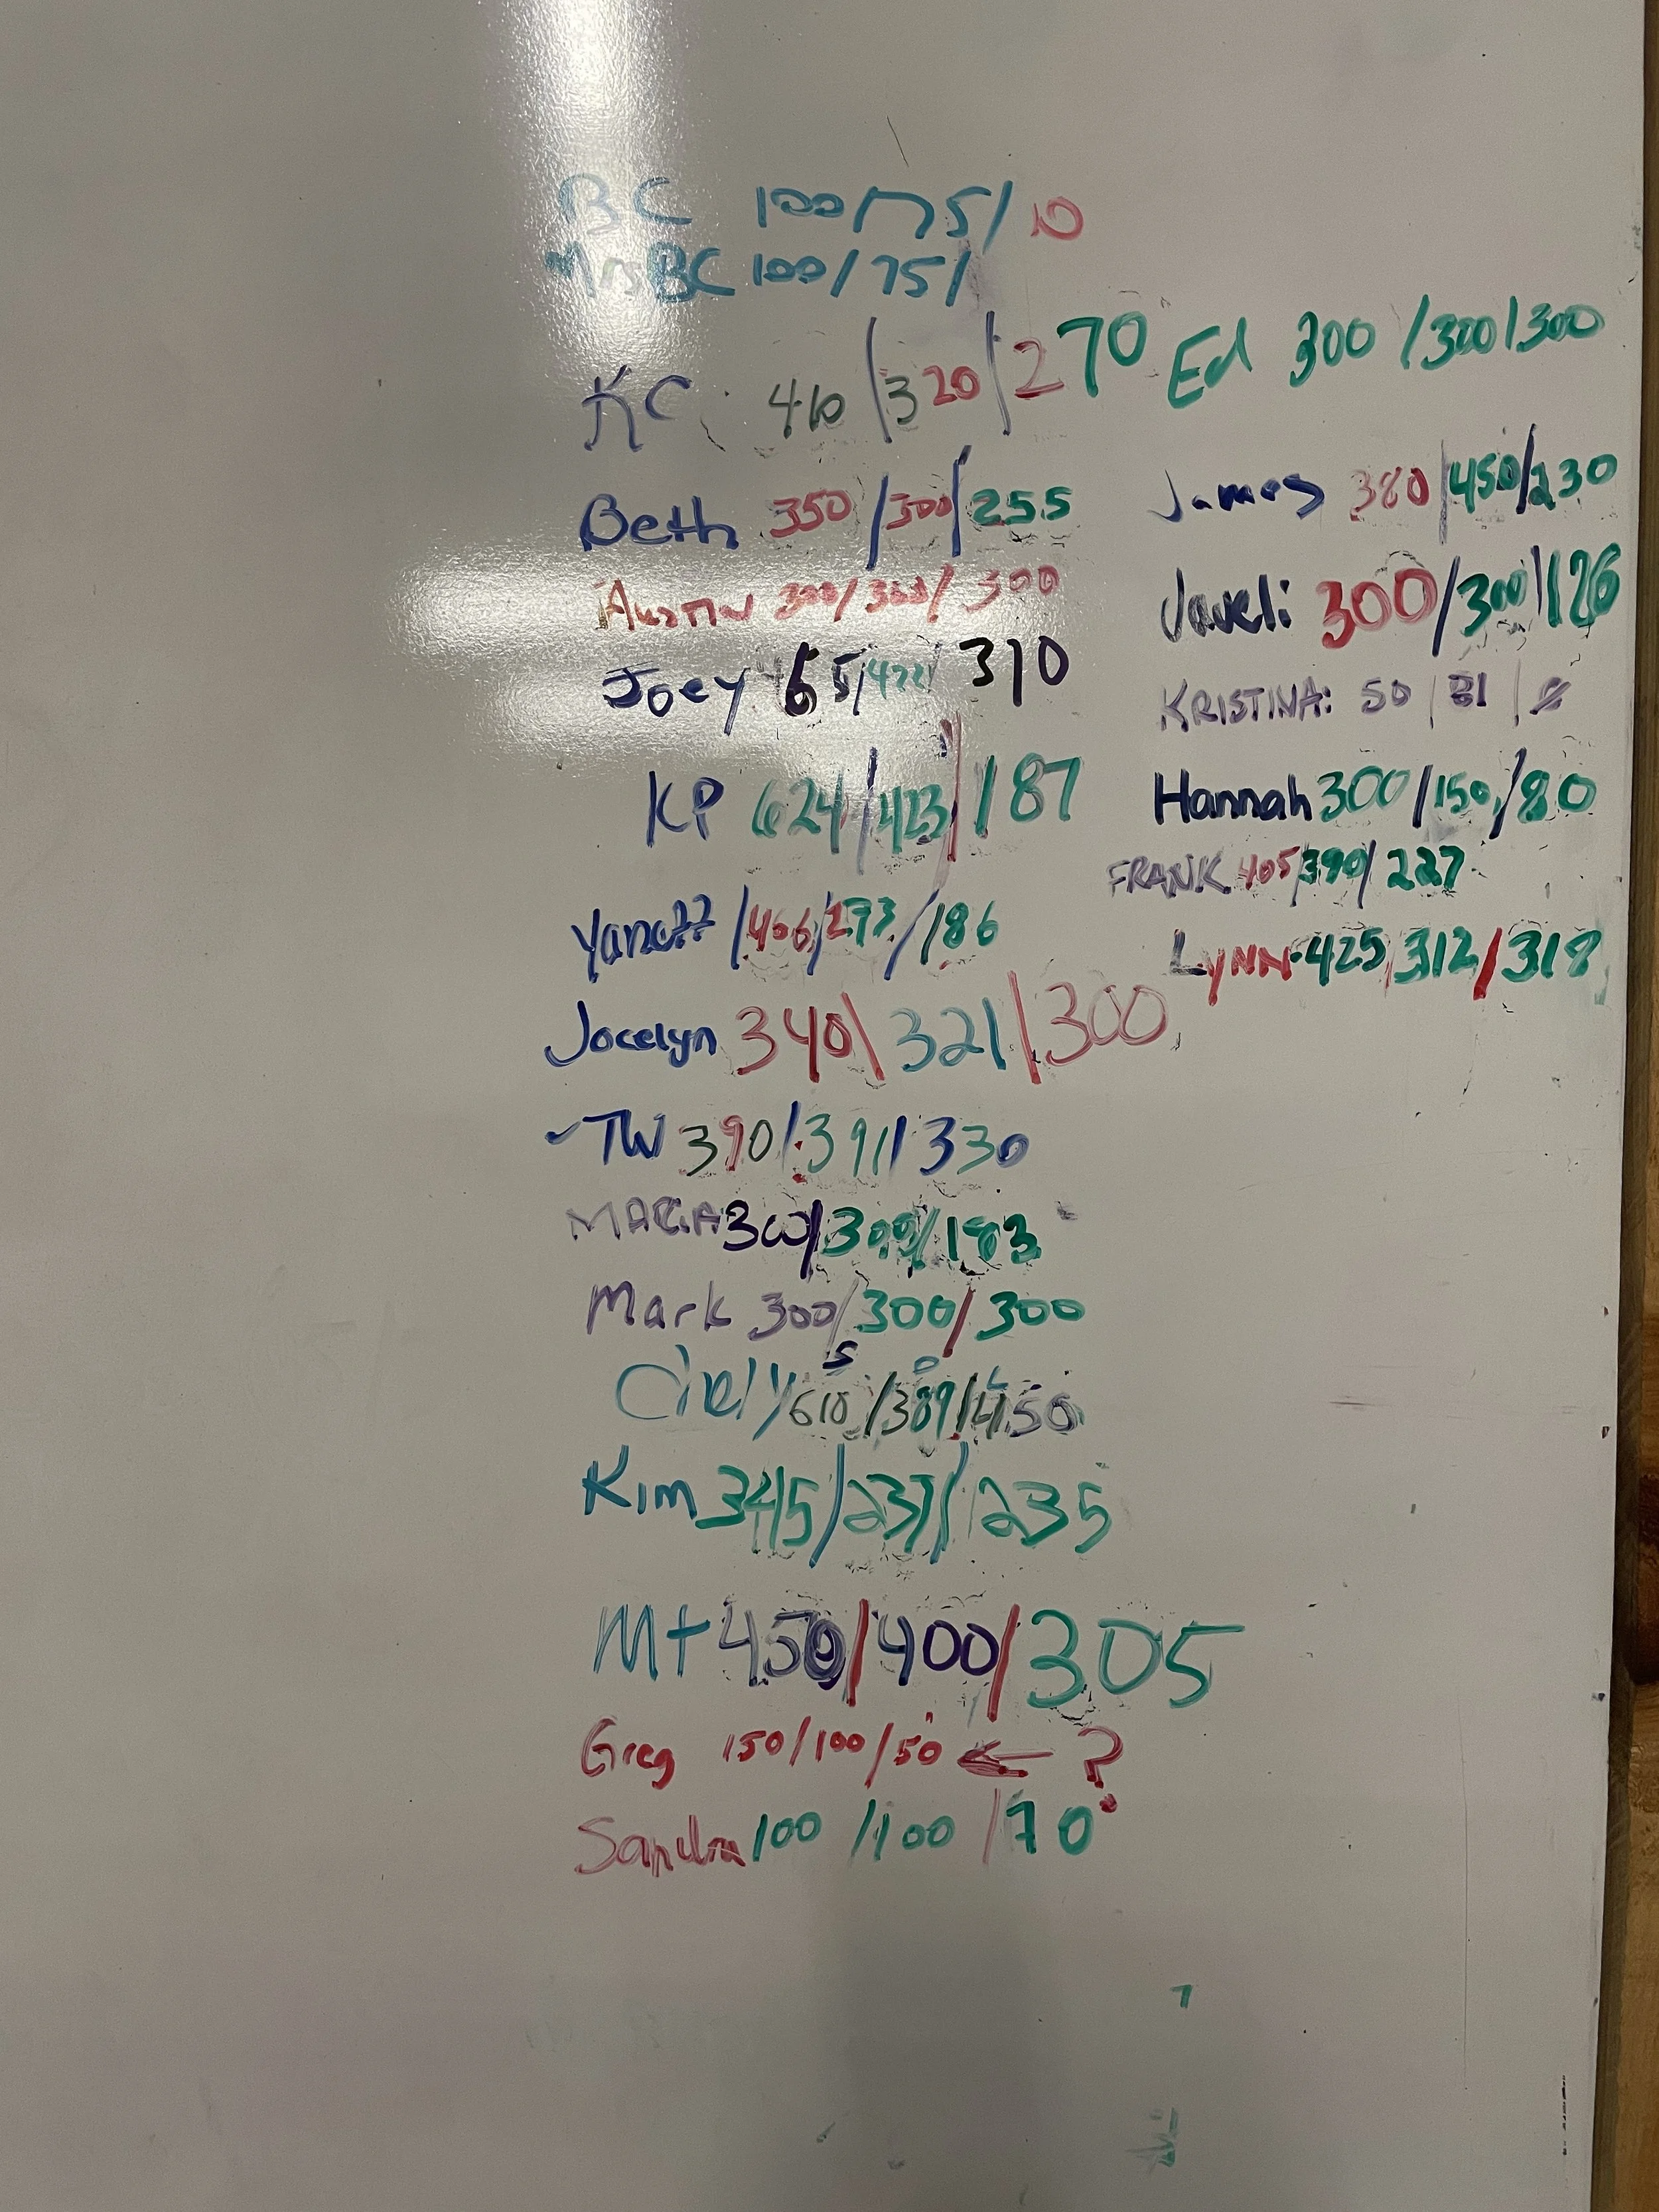 BC 100/75/10
MrsBC 100/75/
KC: 410/320/270
Beth 350/300/255
Austin 300/300/300
Joey 465/422/310
KP 624/423/187
/406/273/186
Jocelyn 340\321/300
-TW 390/391/330
MARIA 300/300/183
Mark 300/300/300
610/389/450
Kim 345/237/235
Mt 450/400/305
Greg 150/100/50 ← ?
Sandra 100/100/70
Ed 300/300/300
James 380/450/230
Javeli 300/300/126
KRISTINA: 50/31/
Hannah 300/150/80
FRANK 405/390/227
LYNN 425/312/318